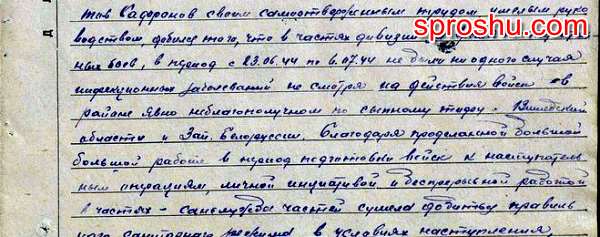 тов Садоранов своим самоотверженным трудом умелым руко
sproshu.com
водством, добился того, что в частях дивизии
ных боев, в период с 23.06.44 по 6.07.44 не было ни одного случая
инфекционных заболеваний не смотря на действия войск в
районе явно неблагополучном по сыпному тифу - 
области и Зап. Белоруссии. Благодаря проделанной большой
большой работе в период подготовки войск к наступатель-
ным операциям, личной инициативой и беспрерывной работой
в частях - санслужба частей сумела добиться правиль-
ного санитарного режима в условиях наступления